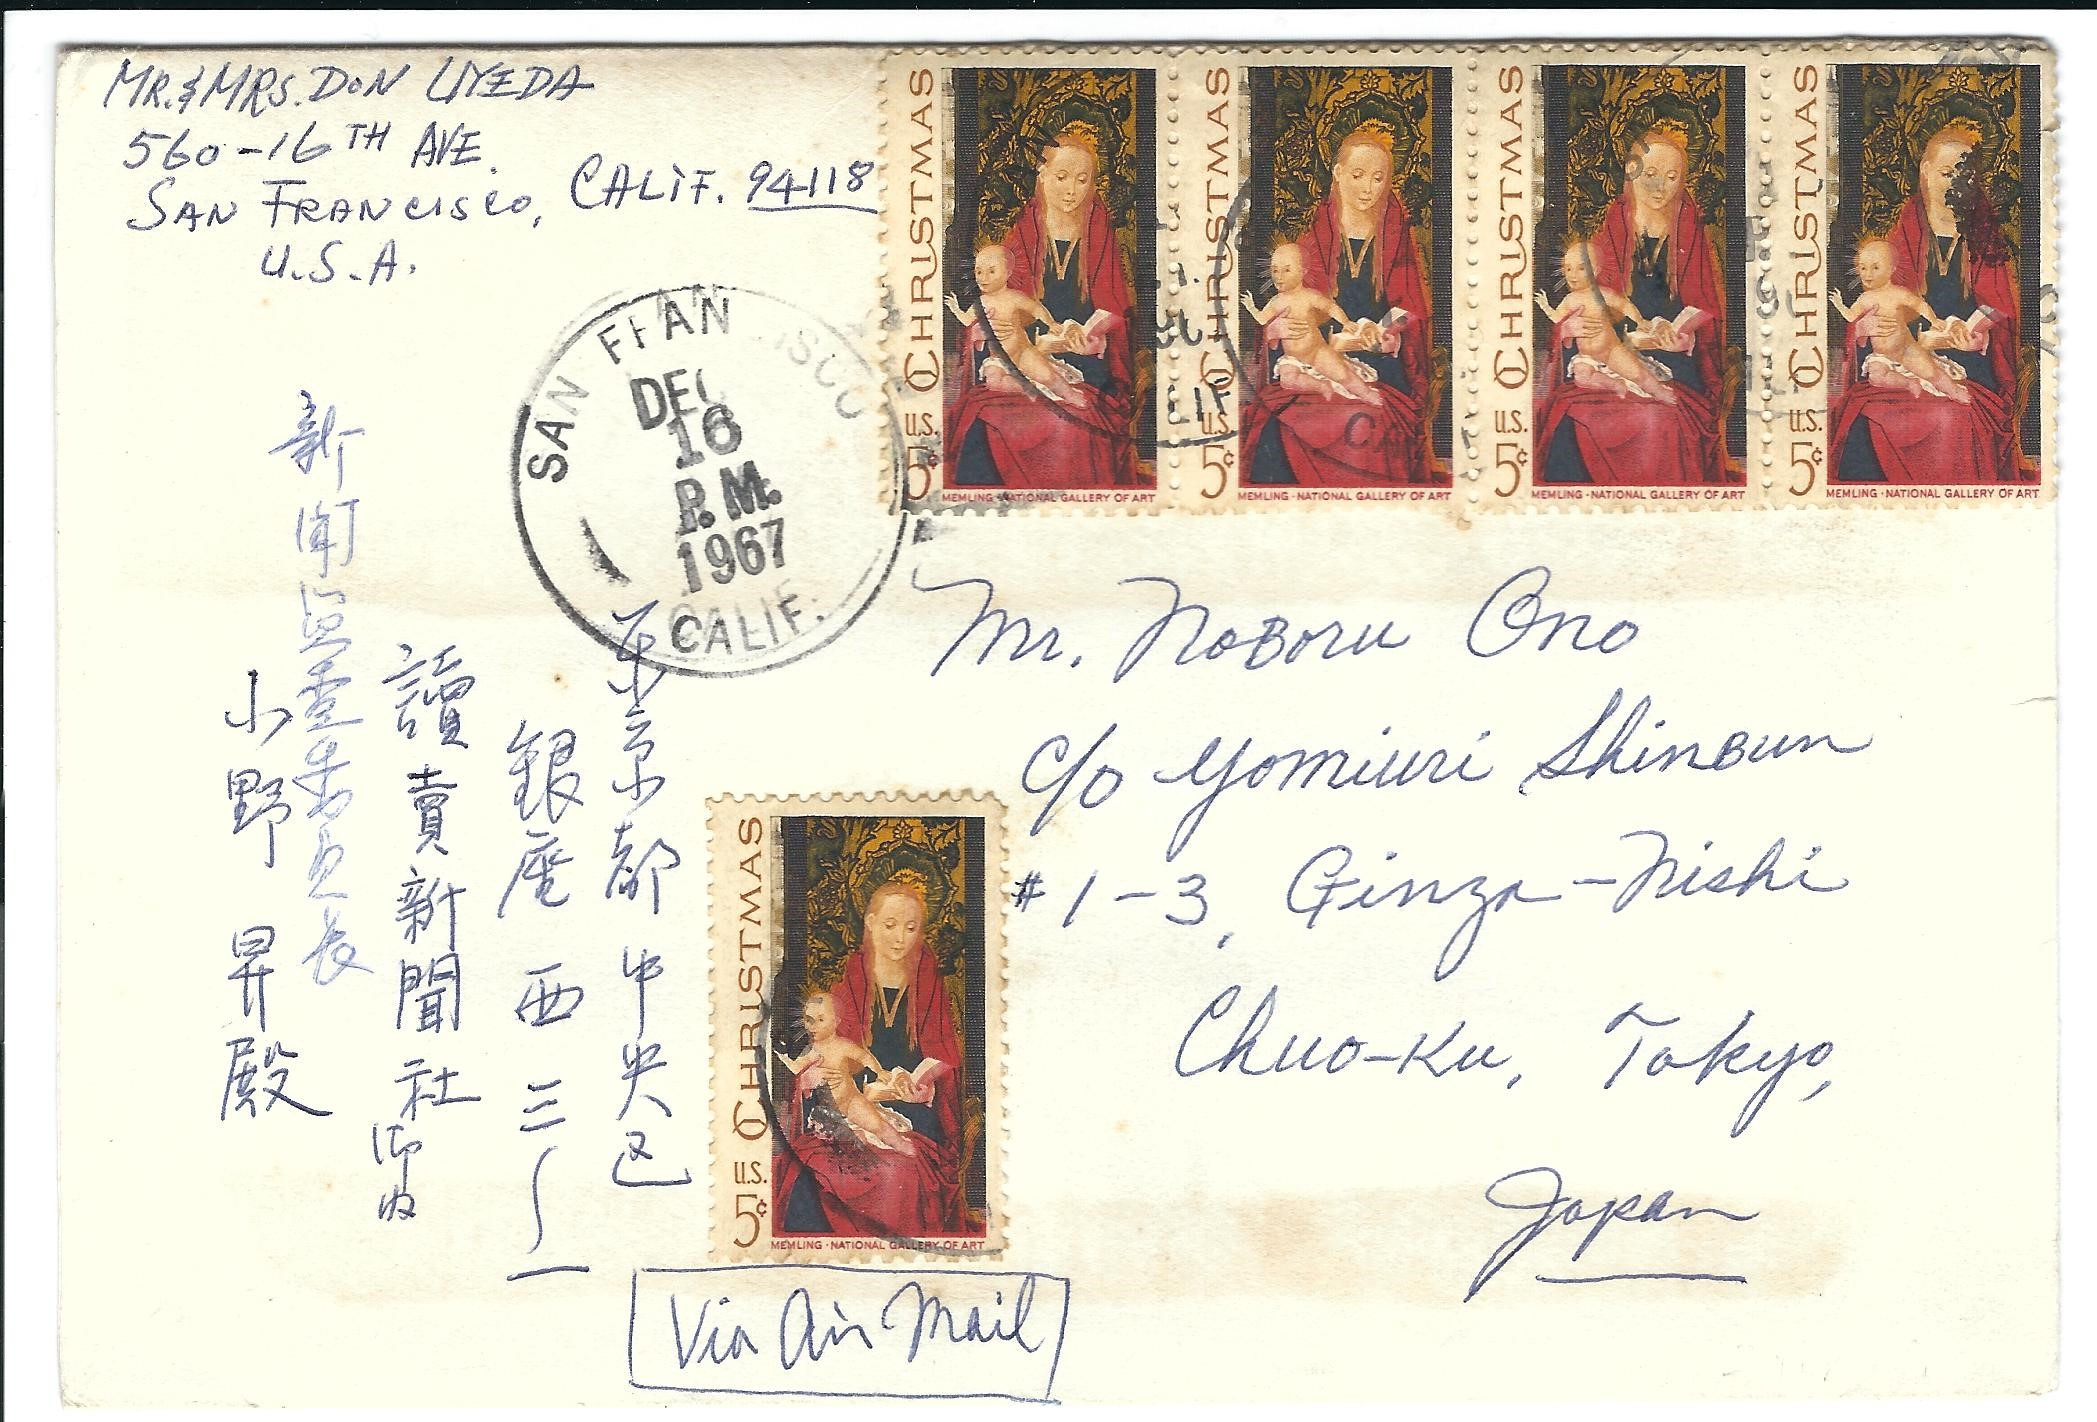 MR. & MRS. DON UYEDA
560-16TH AVE.
SAN FRANCISCO, CALIF. 94118
U.S.A.
CHRISTMAS
U.S. 5¢
MEMLING · NATIONAL GALLERY OF ART
CHRISTMAS
U.S. 5¢
MEMLING · NATIONAL GALLERY OF ART
CHRISTMAS
U.S. 5¢
MEMLING · NATIONAL GALLERY OF ART
CHRISTMAS
U.S. 5¢
MEMLING · NATIONAL GALLERY OF ART
SAN FRANCISCO
DEC
16
P.M.
1967
CALIF.
Mr. Noboru Ono
c/o Yomiuri Shinbun
#1-3, Ginza-Nishi
Chuo-Ku, Tokyo,
Japan
東京都中央区
銀座西三〜一
讀賣新聞社
新聞監査委員長
小野昇殿
CHRISTMAS
U.S. 5¢
MEMLING · NATIONAL GALLERY OF ART
Via Air Mail